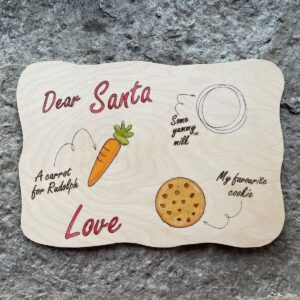 Dear Santa
Some
yummy
milk
A carrot
for Rudolph
My favourite
cookie
Love